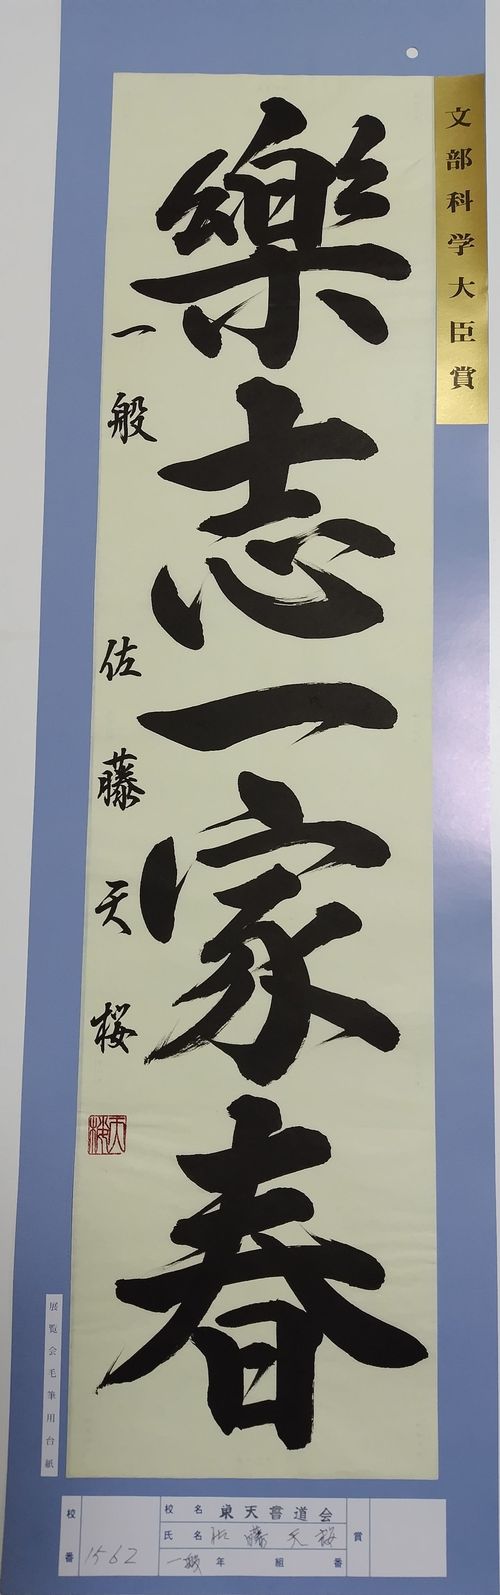 文部科学大臣賞
樂志一家春
一般 佐藤天桜
天桜
展覧会毛筆用台紙
校番 1562
校名 東天書道会
氏名 佐藤天桜
一般 年 組 番
賞